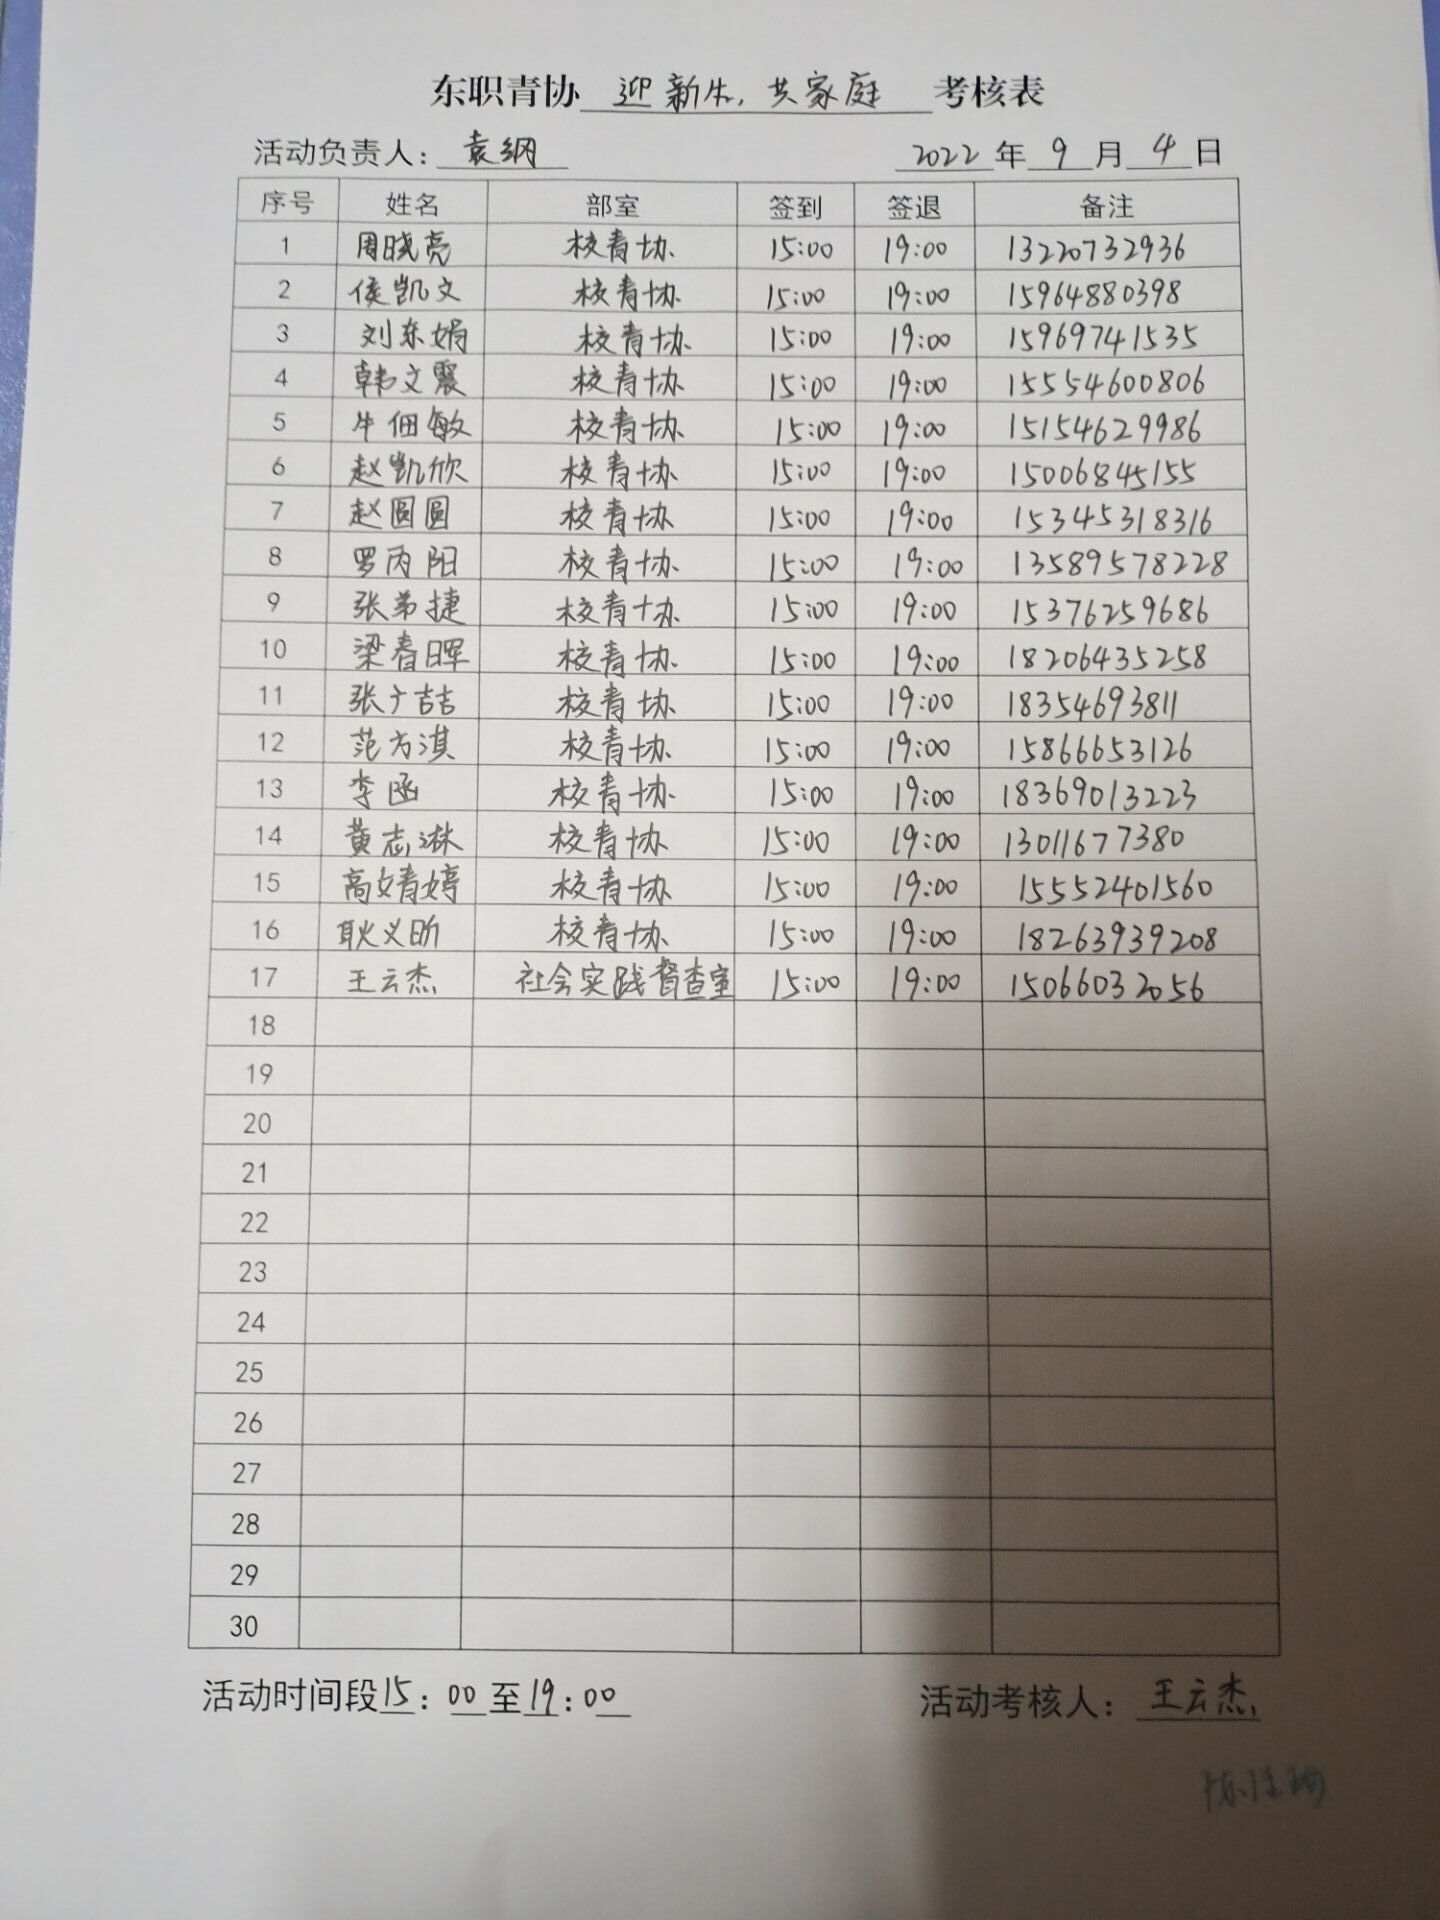 东职青协 迎新生,共家庭 考核表
活动负责人: 袁纲 2022 年 9 月 4 日
序号 姓名 部室 签到 签退 备注
1 周晓亮 校青协 15:00 19:00 13220732936
2 侯凯文 校青协 15:00 19:00 15964880398
3 刘东娟 校青协 15:00 19:00 15969741535
4 韩文震 校青协 15:00 19:00 15554600806
5 牛佃敏 校青协 15:00 19:00 15154629986
6 赵凯欣 校青协 15:00 19:00 15006845155
7 赵圆圆 校青协 15:00 19:00 15345318316
8 罗丙阳 校青协 15:00 19:00 13589578228
9 张弟捷 校青协 15:00 19:00 15376259686
10 梁春晖 校青协 15:00 19:00 18206435258
11 张广喆 校青协 15:00 19:00 18354693811
12 范方淇 校青协 15:00 19:00 15866653126
13 李函 校青协 15:00 19:00 18369013223
14 黄志淋 校青协 15:00 19:00 13011677380
15 高婧婷 校青协 15:00 19:00 15552401560
16 耿义昕 校青协 15:00 19:00 18263939208
17 王云杰 社会实践督查室 15:00 19:00 15066032056
18
19
20
21
22
23
24
25
26
27
28
29
30
活动时间段15:00至19:00 活动考核人: 王云杰